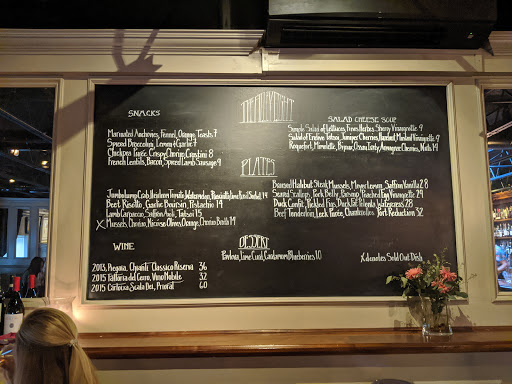 SNACKS
Marinated Anchovies, Fennel, Orange, Toasts 7
Spiced Broccolini, Lemon & Garlic 7
Chickpea Purée, Crispy Chorizo, Crostini 8
French Lentils, Bacon, Spiced Lamb Sausage 9
SALAD CHEESE SOUP
Simple Salad of Lettuces, Fines Herbes, Sherry Vinaigrette 9
Salad of Endive, Tatsoi, Juniper Cherries, Hazelnut, Vinaigrette 9
Roquefort, Mimolette, Toasty, Cherries, Nuts 14
PLATES
Jumbo Lump Crab, Heirloom Tomato, Watermelon, Salad 14
Beet Risotto, Garlic Boursin, Pistachio 14
Lamb Carpaccio, Saffron Aioli, Tatsoi 15
X Mussels, Chorizo, Nicoise Olives, Orange, Broth 14
Halibut Steak, Mussels, Meyer Lemon, Saffron Vanilla 28
Seared Scallops, Pork Belly, Vinaigrette 29
Duck Confit, Pickled Figs, Duck Fat Polenta, Watercress 28
Beef Tenderloin, Leek Purée, Chanterelles, Port Reduction 32
WINE
2013, Chianti Classico Riserva 36
2015 Fattoria del Cerro, Vino Nobile 32
2015 Cartoixa Scala Dei, Priorat 60
DESSERT
Pavlova, Lime Curd, Cardamom Blueberries 10
X denotes Sold Out Dish